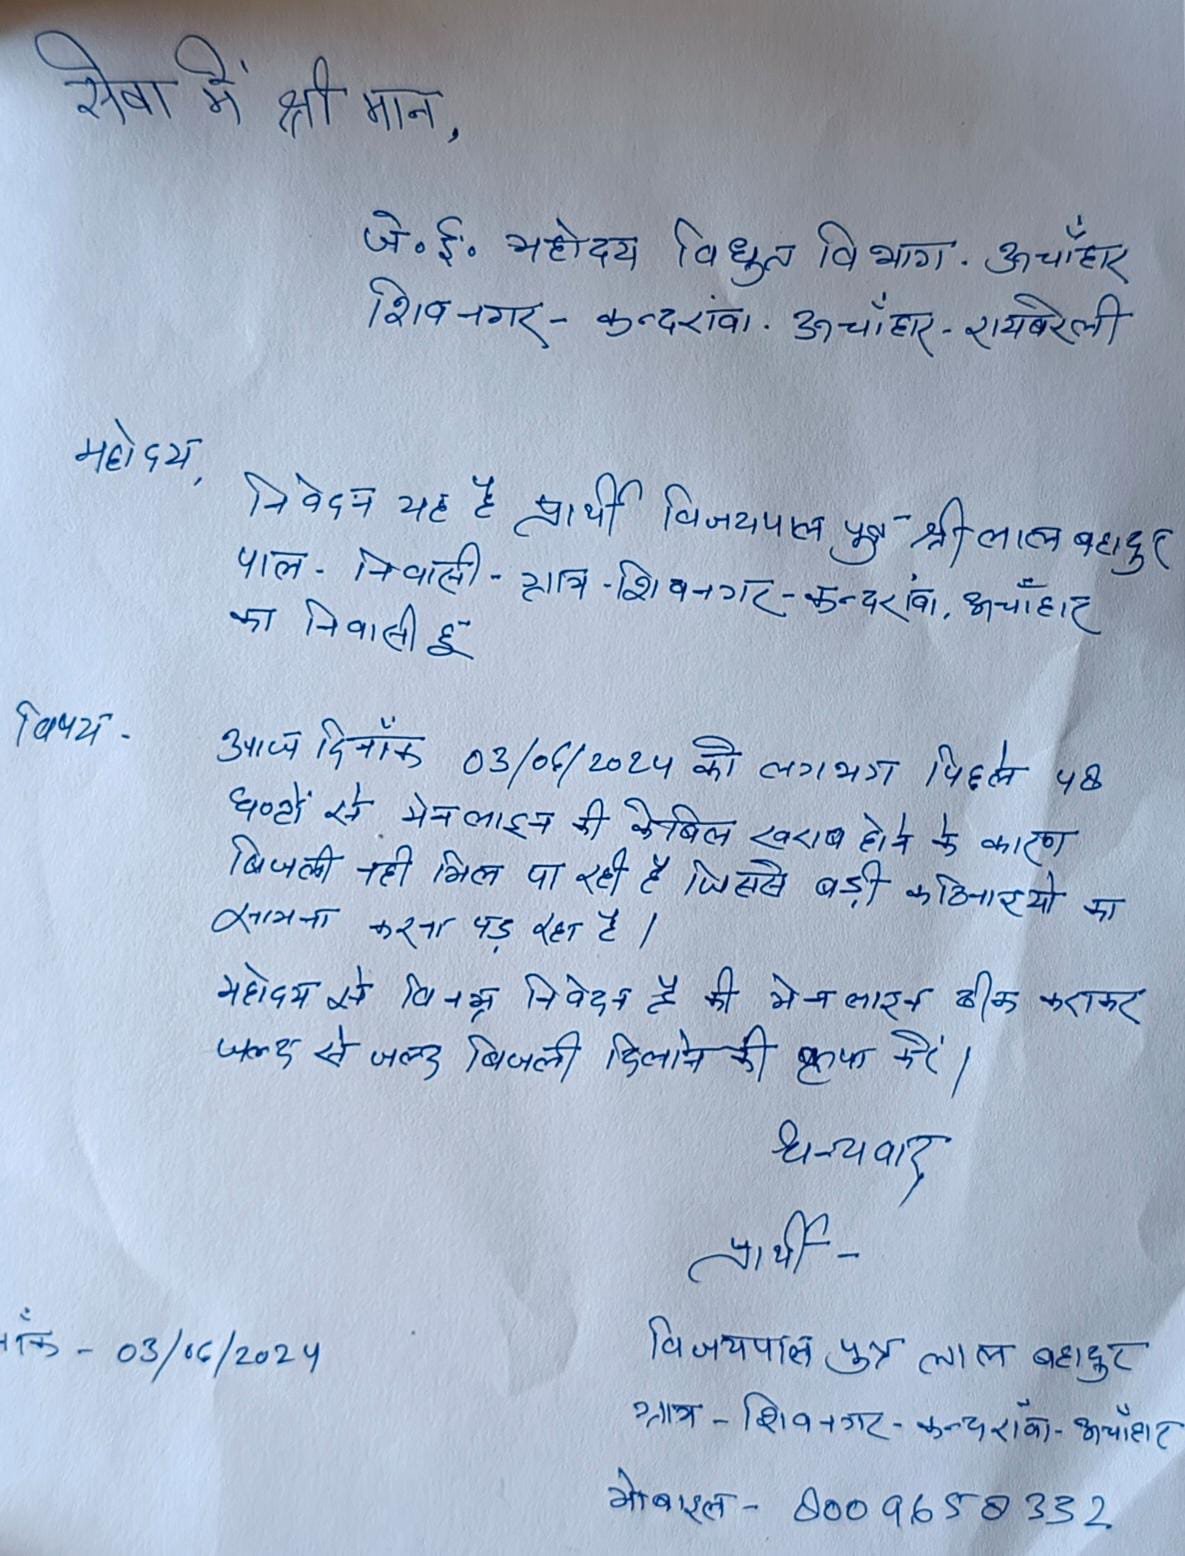 सेवा में श्री मान,
जे०ई० महोदय विधुत विभाग. ऊचाँहार
शिवनगर- कन्दरांवा. ऊचाँहार- रायबरेली
महोदय,
निवेदन यह है प्रार्थी विजयपाल पुत्र श्री लाल बहादुर
पाल- निवासी- ग्राम-शिवनगर-कन्दरांवा, ऊचाँहार
का निवासी हूँ
विषय- आज दिनाँक 03/06/2024 को लगभग पिछले 48
घण्टों से मेनलाइन की केबिल खराब होने के कारण
बिजली नही मिल पा रही है जिससे बड़ी कठिनाइयो का
सामना करना पड़ रहा है।
महोदय से विनम्र निवेदन है की मेनलाइन ठीक कराकर
जल्द से जल्द बिजली दिलाने की कृपा करें।
धन्यवाद
प्रार्थी-
नाँक - 03/06/2024
विजयपाल पुत्र लाल बहादुर
ग्राम - शिवनगर- कन्दराँवा- ऊचाँहार
मोबाइल- 8009658332